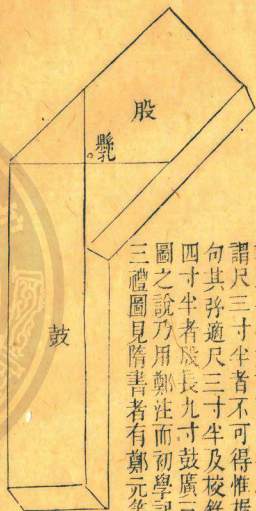 謂尺三寸半者不可得惟據
句其弦適尺三寸半及校算
四寸半者股長九寸鼓廣三
圖之說乃用鄭注而初學記
三禮圖見隋書者有鄭元等
股
懸孔
鼓